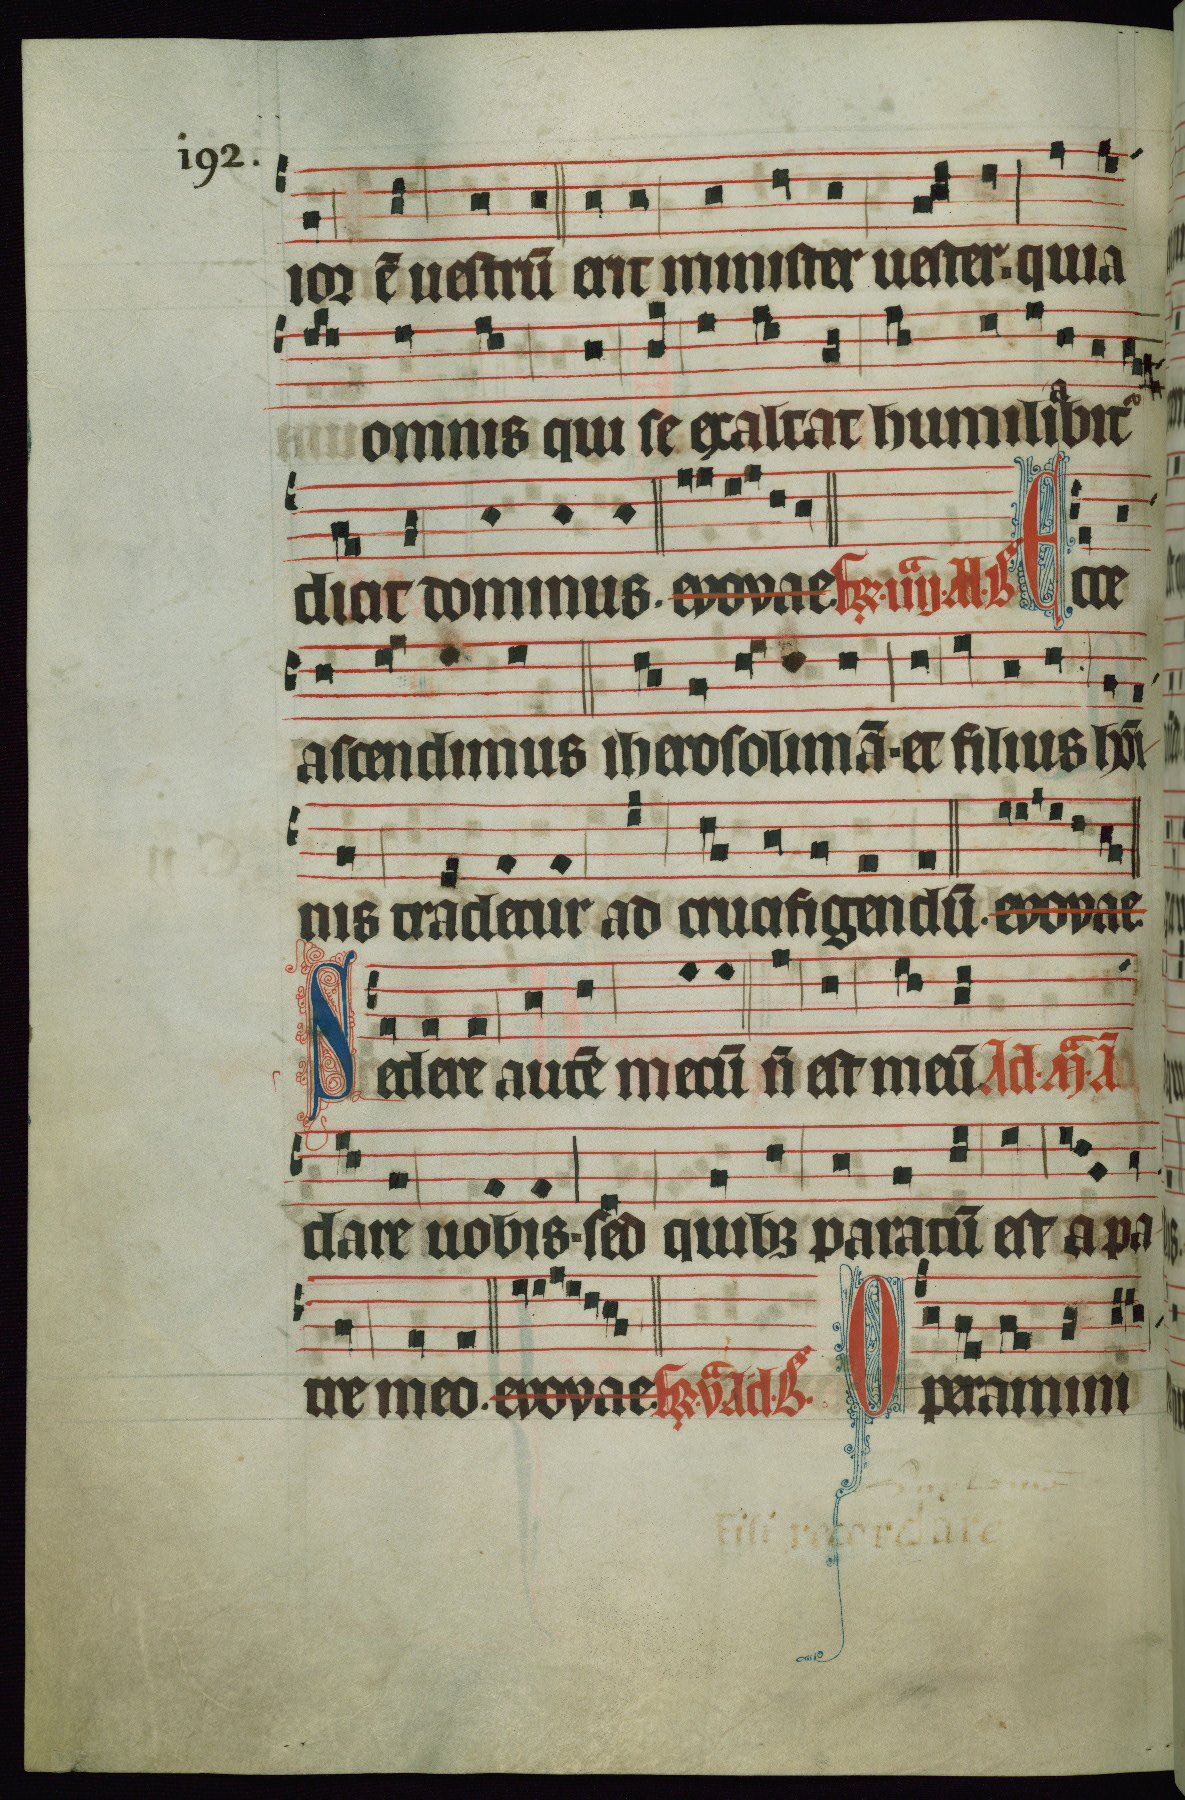 192.
ior ē uestrū erit minister uester. quia
omnis qui se exaltat humiliabit
dicit dominus. evovae. Ecce
ascendimus iherosolimā. et filius hoī
nis tradetur ad crucifigendū. evovae
Sedere autē mecū n̄ est meū Ad
dare uobis. sed quibȝ paratū est a pa
tre meo. evovae. Operamini
Fili recordare